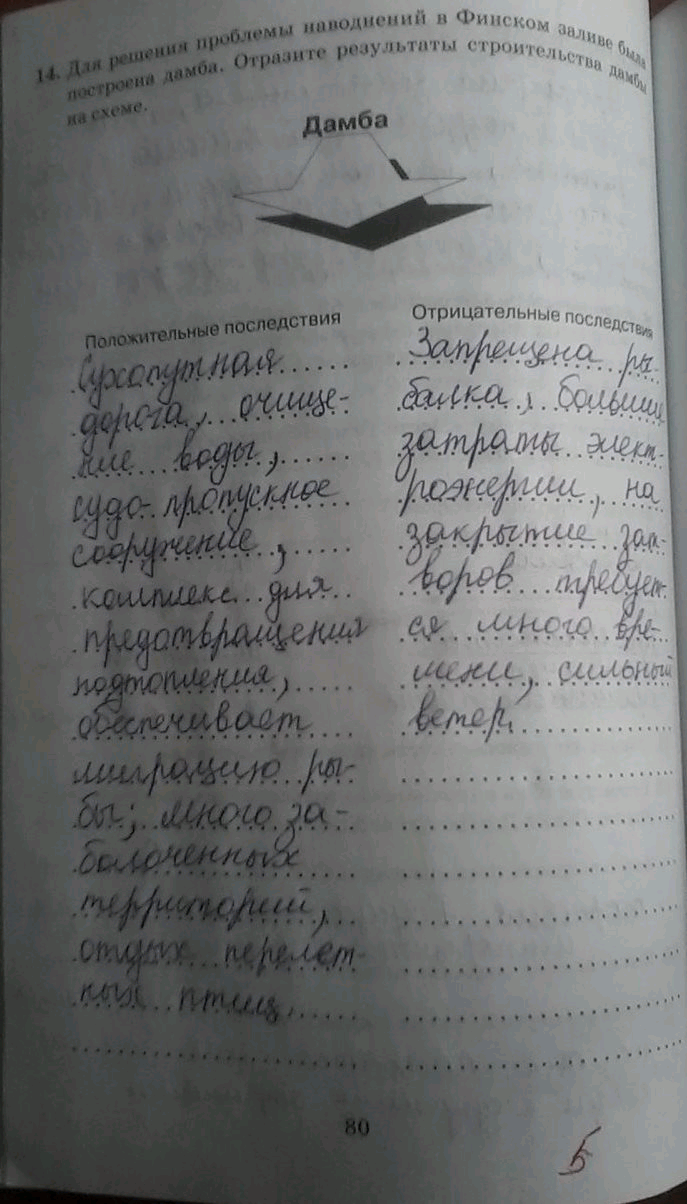 14. Для решения проблемы наводнений в Финском заливе была
построена дамба. Отразите результаты строительства дамбы
на схеме.
Дамба
Положительные последствия
Сухопутная
дорога, очище-
ние воды,
судо-пропускное
сооружение,
комплекс для
предотвращения
подтопления,
обеспечивает
миграцию ры-
бы; много за-
болоченных
территорий,
отдых перелет-
ных птиц.
Отрицательные последствия
Запрещена ры-
балка, большие
затраты элект-
роэнергии, на
закрытие зат-
воров требует-
ся много вре-
мени, сильный
ветер.
80
5